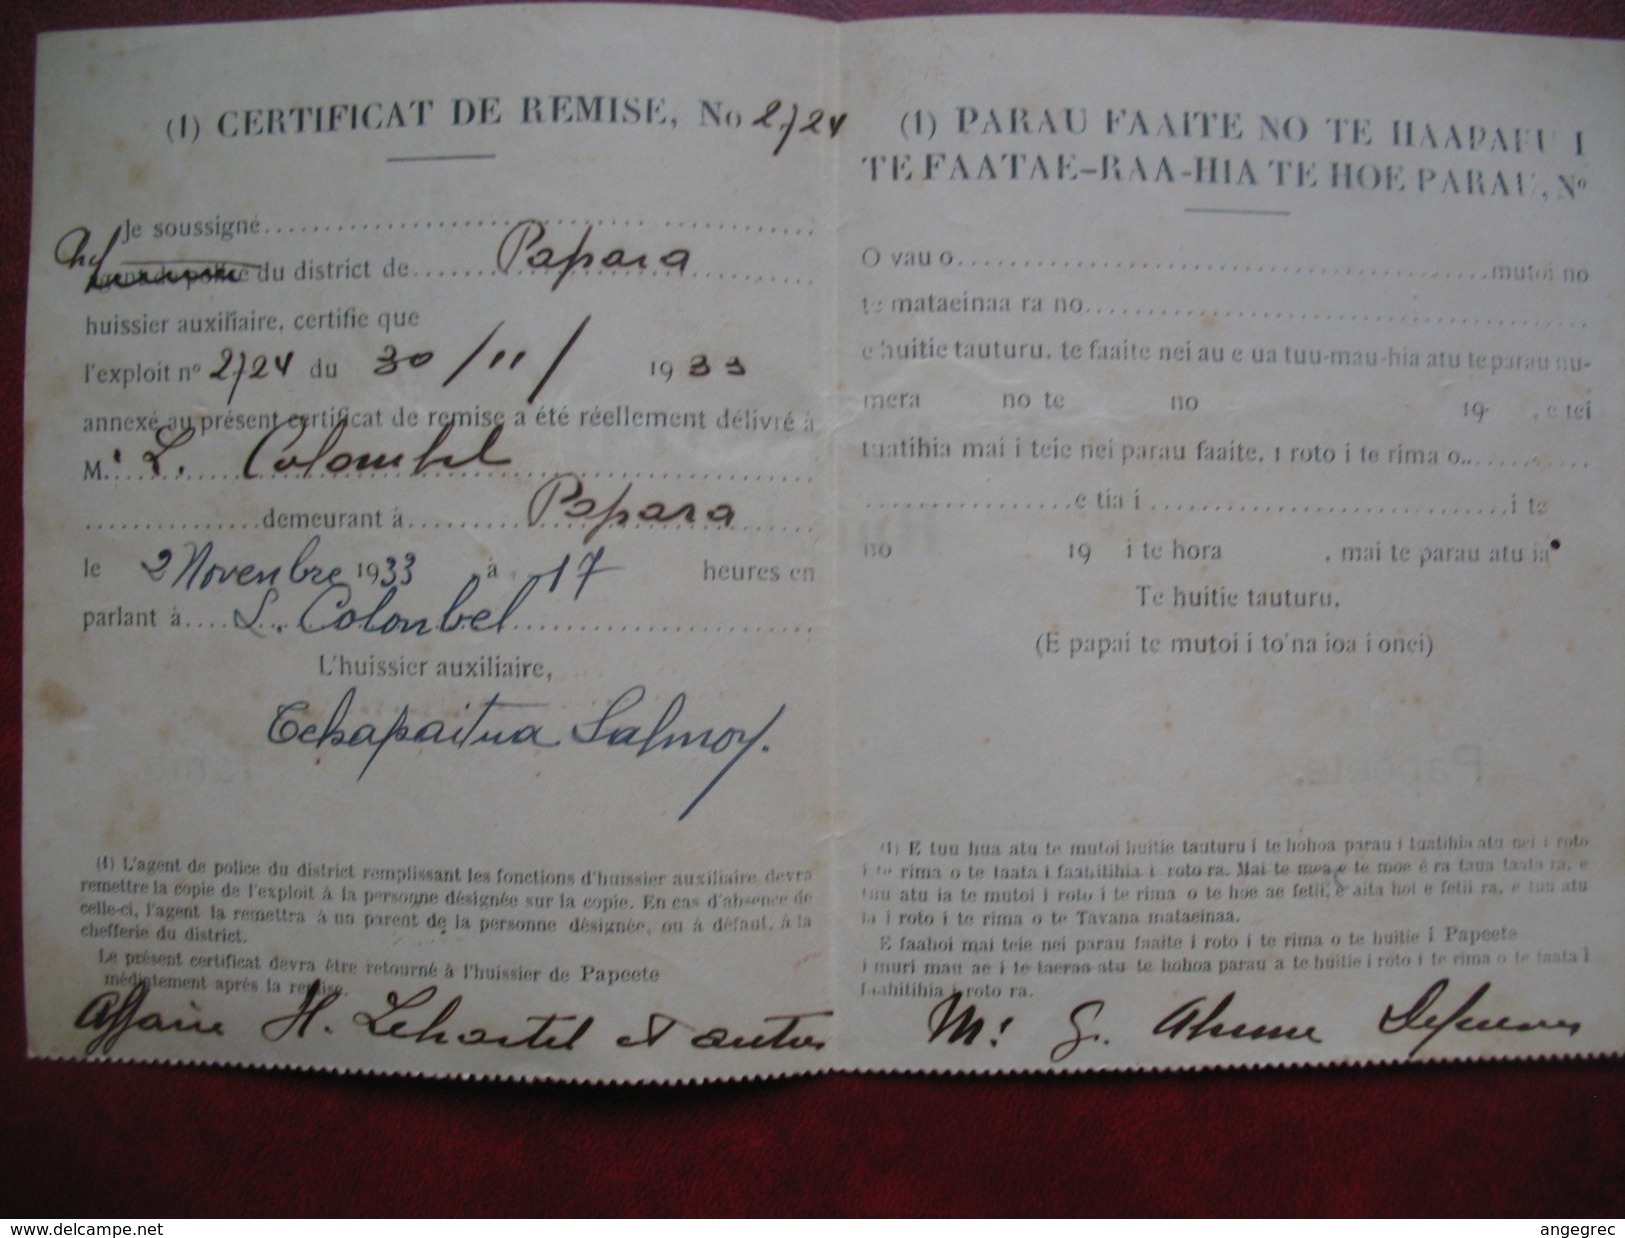 (1) CERTIFICAT DE REMISE, No 2724
Je soussigné
Chef du district de Papara
huissier auxiliaire, certifie que
l'exploit nº 2724 du 30/11/ 1933
annexé au présent certificat de remise a été réellement délivré à
M. L. Colombel
demeurant à Papara
le 2 Novenbre 1933 à 17 heures en
parlant à L. Colonbel
L'huissier auxiliaire,
Tehapaitua Salmon.
(1) L'agent de police du district remplissant les fonctions d'huissier auxiliaire devra
remettre la copie de l'exploit à la personne désignée sur la copie. En cas d'absence de
celle-ci, l'agent la remettra à un parent de la personne désignée, ou à défaut, à la
chefferie du district.
Le présent certificat devra être retourné à l'huissier de Papeete
médiatement après la remise.
Affaire H. Lehartel et autres
(1) PARAU FAAITE NO TE HAAPAPU I
TE FAATAE-RAA-HIA TE HOE PARAU, Nº
O vau o mutoi no
te mataeinaa ra no
e huitie tauturu, te faaite nei au e ua tuu-mau-hia atu te parau nu-
mera no te no 19 , e tei
tuatihia mai i teie nei parau faaite, i roto i te rima o
e tia i i te
no 19 i te hora , mai te parau atu ia
Te huitie tauturu,
(E papai te mutoi i to'na ioa i onei)
Papeete.
(1) E tuu hua atu te mutoi huitie tauturu i te hohoa parau i tuatihia atu nei i roto
i te rima o te taata i faahitihia i roto ra. Mai te mea e te moe ê ra taua taata ra, e
tuu atu ia te mutoi i roto i te rima o te hoe ae fetii, e aita hoi e fetii ra, e tuu atu
ia i roto i te rima o te Tavana mataeinaa.
E faahoi mai teie nei parau faaite i roto i te rima o te huitie i Papeete
i muri mau ae i te taeraa atu te hohoa parau a te huitie i roto i te rima o te taata i
faahitihia i roto ra.
Mr G. Ahnne
www.delcampe.net
angegrec